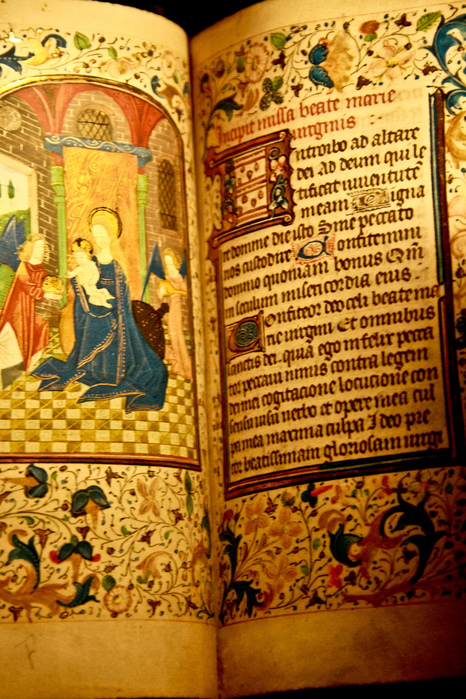 Incipit missa beate marie
uirginis :
Introibo ad altare
dei ad deum qui le
tificat iuuentutē
meam Digna
re domine die isto Sine peccato
nos custodire Confitemini
domino quoniam bonus Qm̄
in seculum misericordia eius .
Confiteor deo celi beate ma
rie virgini Et omnibus
sanctis dei . quia ego infelix pecca
tor peccaui nimis contra legem
dei mei cogitacione locutione con
sensu visu verbo et opere mea cul
pa mea maxima culpa Ideo pre
cor beatissimam gloriosam uirgi